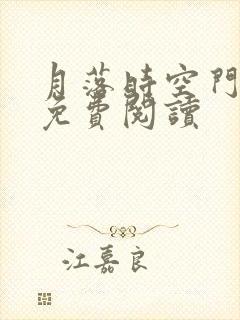 月落時空門
免費閱讀
江嘉良